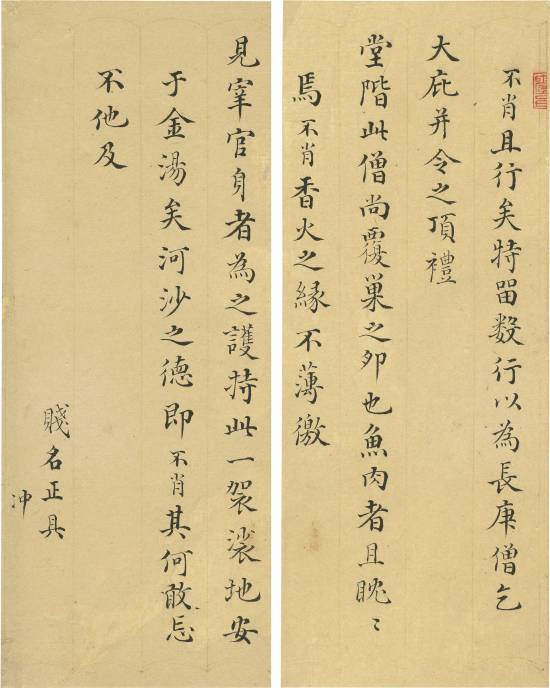 不肖且行矣特留数行以為長庚僧乞
大庇并令之頂禮
堂階此僧尚覆巢之卵也魚肉者且眈〻
焉不肖香火之緣不薄徼
見宰官身者為之護持此一袈裟地安
于金湯矣河沙之德即不肖其何敢忘
不他及
賤名正具
冲